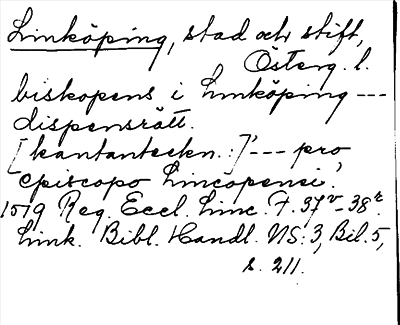 Linköping, stad och stift,
Österg. l.
biskopens i Linköping ---
dispensrätt.
[kantanteckn.:]' --- pro
episcopo Lincopensi'.
1519 Reg. Eccl. Linc. f. 37v-38r.
Link. Bibl. Handl. NS: 3, Bil. 5,
s. 211.